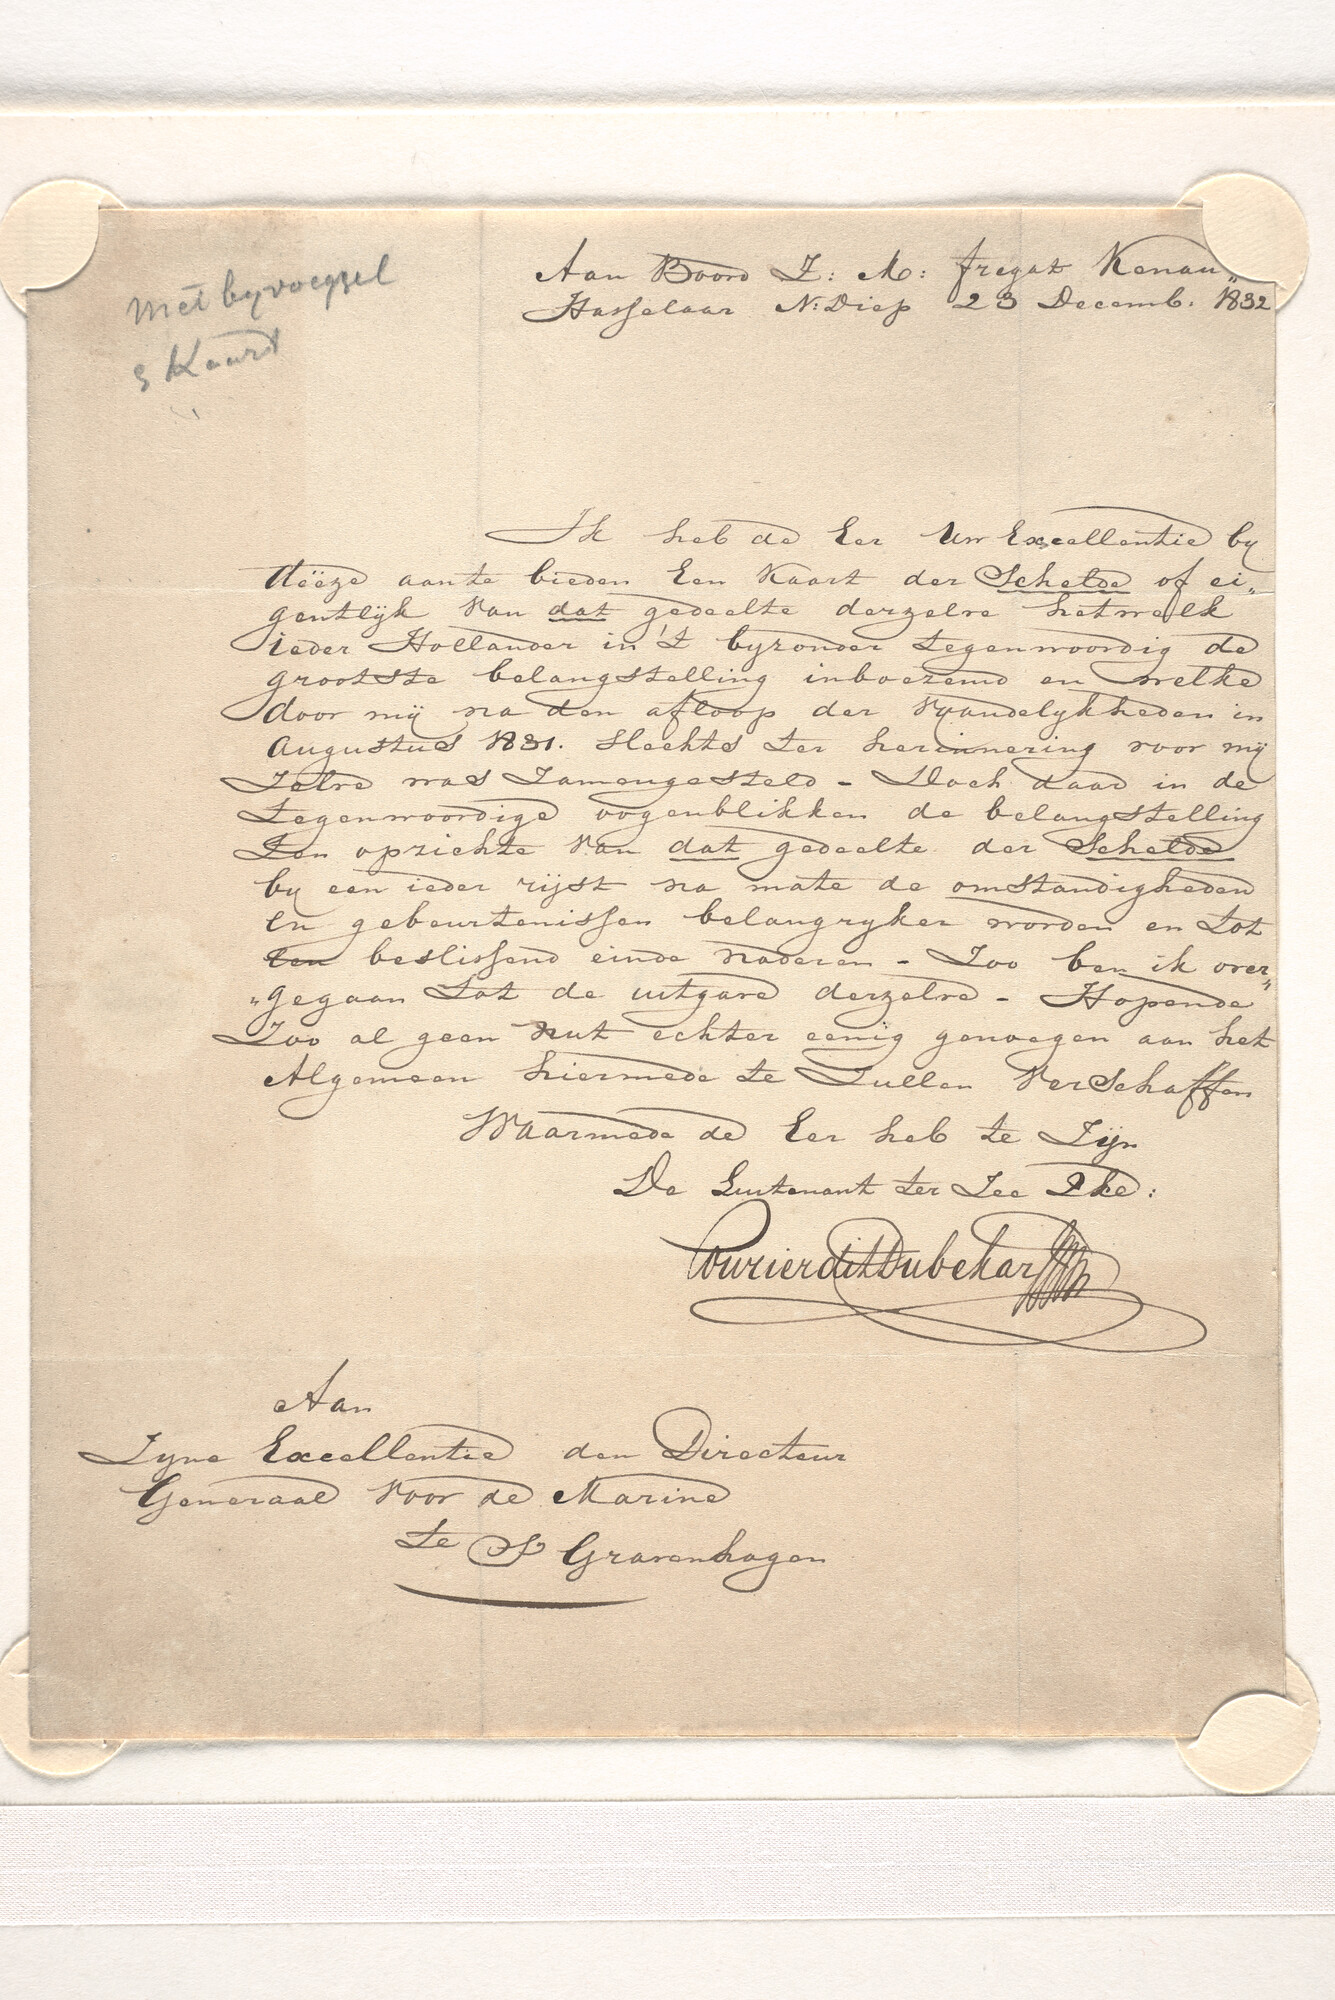 Met byvoegsel
& Kaart
Aan Boord Z: M: fregat Kenau„
Hasselaar N: Diep 23 Decemb. 1832
Ik heb de Eer Uw Excellentie by
dëeze aante bieden Een Kaart der Schelde of ei„
gentlijk van dat gedeelte derzelve hetwelk
ieder Hollander in 't byzonder tegenwoordig de
grootste belangstelling inboezemd en welke
door mij na den afloop der Vyandelykheden in
Augustus 1831. slechts ter herinnering voor mij
Zelve was Zamengesteld - Doch daar in de
tegenwoordige oogenblikken de belangstelling
ten opzichte van dat gedeelte der Schelde
by een ieder rijst na mate de omstandigheden
en gebeurtenissen belangryker worden en tot
een beslissend einde naderen - Zoo ben ik over„
„gegaan tot de uitgave derzelve - Hopende
Zoo al geen nut echter eenig genoegen aan het
Algemeen hiermede te Zullen Verschaffen
Waarmede de Eer heb te Zijn
De Luitenant ter Zee 2ke:
Courier dit Dubekart
Aan
Zyne Excellentie den Directeur
Generaal voor de Marine
te S Gravenhagen